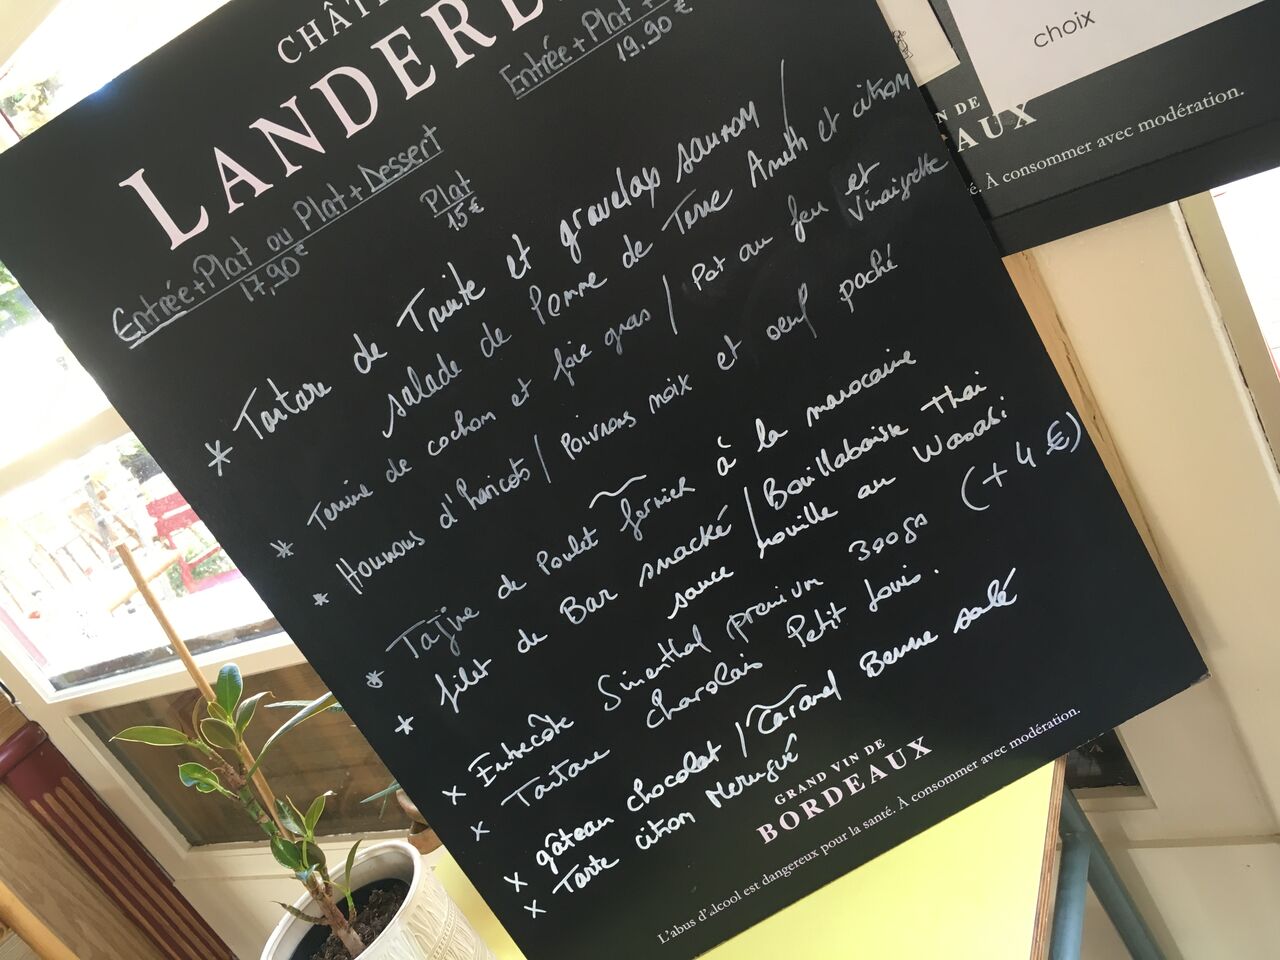 CHÂT
LANDER
Entrée+Plat ou Plat+Dessert
17,90€
Entrée+Plat+
19.90€
Plat
15€
* Tartare de Truite et gravelax saumon /
salade de Pomme de Terre Aneth et citron
* Terrine de cochon et foie gras / Pot au feu et Vinaigrette
* Houmous d'haricots / Poivrons noix et oeuf poché
* Tajine de Poulet fermier à la marocaine
* filet de Bar snacké / Bouillabaisse Thai
sauce rouille au Wasabi
x Entrecôte Simenthal premium 300grs (+4€)
x Tartare charolais Petit Louis.
x gâteau chocolat / Caramel Beurre salé
x Tarte citron Meringué
GRAND VIN DE
BORDEAUX
L'abus d'alcool est dangereux pour la santé. À consommer avec modération.
choix
N DE
AUX
é. À consommer avec modération.